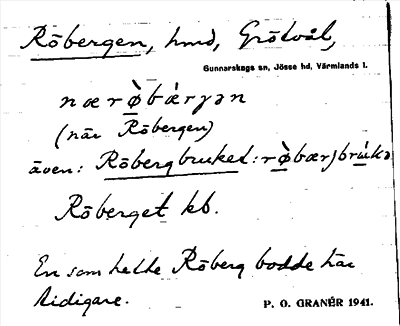 Röbergen, hmd, Grötvål,
Gunnarskogs sn, Jösse hd, Värmlands l.
nær ø̀bǽrjən
(när Röbergen)
även: Röbergbruket: rø̀bærjbrúkə
Röberget kb.
En som hette Röberg bodde här
tidigare.
P. O. GRANÉR 1941.